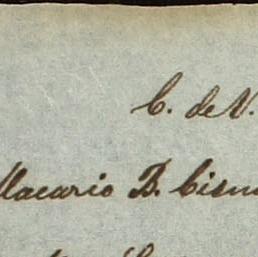 C. de V.
Macario B. Cisn